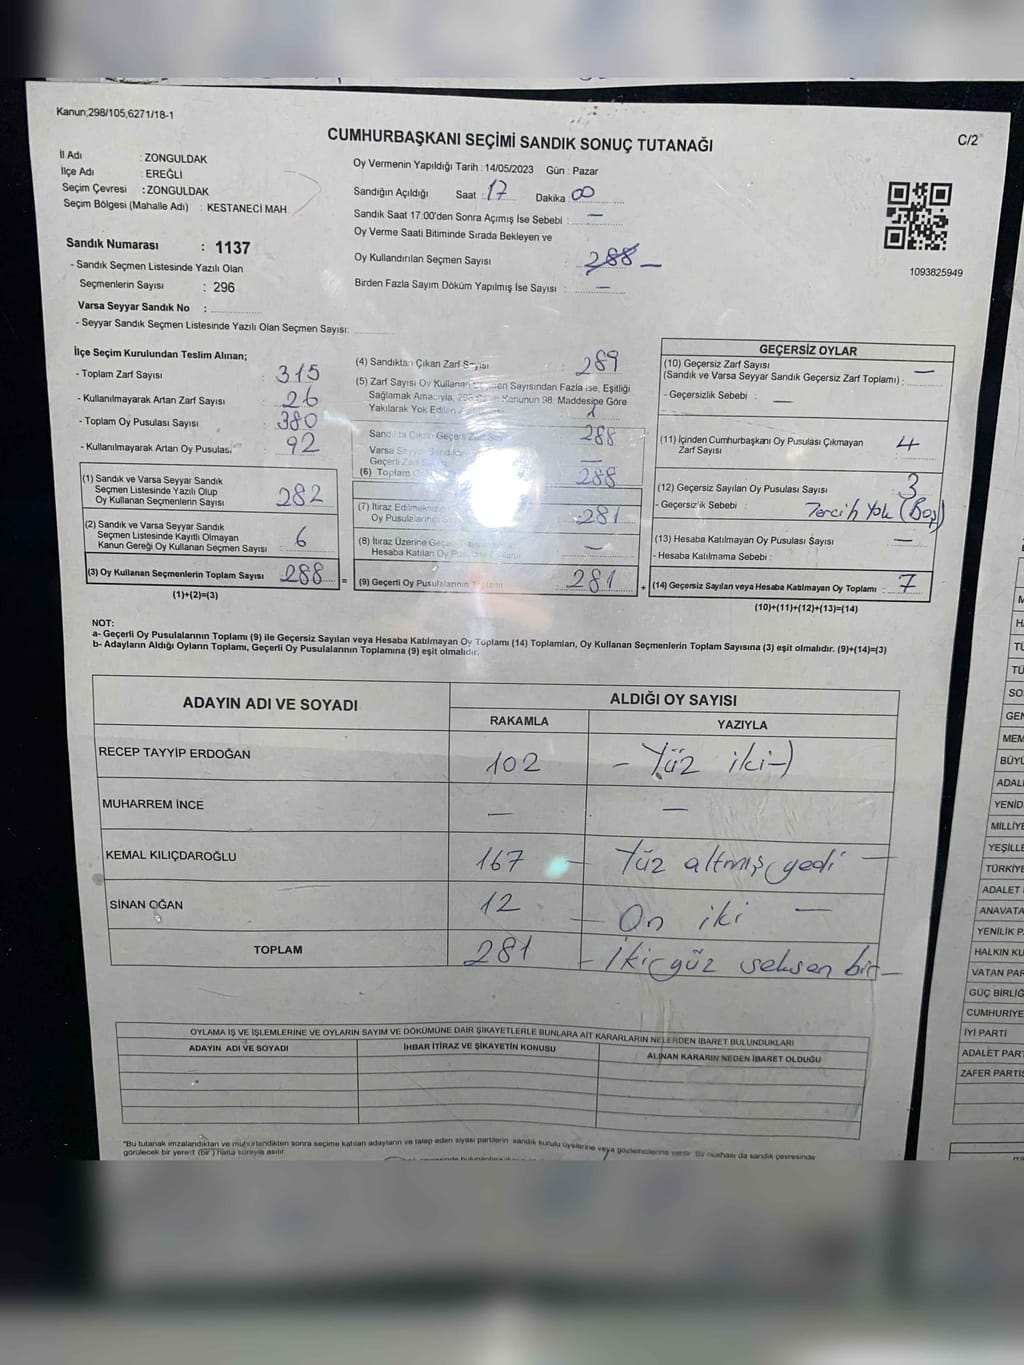 Kanun,298/105,6271/18-1
CUMHURBAŞKANI SEÇİMİ SANDIK SONUÇ TUTANAĞI
C/2
İl Adı : ZONGULDAK
İlçe Adı : EREĞLİ
Seçim Çevresi : ZONGULDAK
Seçim Bölgesi (Mahalle Adı) : KESTANECİ MAH
Sandık Numarası : 1137
- Sandık Seçmen Listesinde Yazılı Olan
Seçmenlerin Sayısı : 296
Varsa Seyyar Sandık No :
- Seyyar Sandık Seçmen Listesinde Yazılı Olan Seçmen Sayısı:
Oy Vermenin Yapıldığı Tarih : 14/05/2023 Gün : Pazar
Sandığın Açıldığı Saat : 17 Dakika : 00
Sandık Saat 17:00'den Sonra Açımış İse Sebebi : —
Oy Verme Saati Bitiminde Sırada Bekleyen ve
Oy Kullandırılan Seçmen Sayısı : 288 —
Birden Fazla Sayım Döküm Yapılmış İse Sayısı : —
1093825949
İlçe Seçim Kurulundan Teslim Alınan;
- Toplam Zarf Sayısı : 315
- Kullanılmayarak Artan Zarf Sayısı : 26
- Toplam Oy Pusulası Sayısı : 380
- Kullanılmayarak Artan Oy Pusulası : 92
(1) Sandık ve Varsa Seyyar Sandık
Seçmen Listesinde Yazılı Olup
Oy Kullanan Seçmenlerin Sayısı : 282
(2) Sandık ve Varsa Seyyar Sandık
Seçmen Listesinde Kayıtlı Olmayan
Kanun Gereği Oy Kullanan Seçmen Sayısı : 6
(3) Oy Kullanan Seçmenlerin Toplam Sayısı : 288
(1)+(2)=(3)
=
(4) Sandıktan Çıkan Zarf Sayısı 289
(5) Zarf Sayısı Oy Kullanan Seçmen Sayısından Fazla ise, Eşitliği
Sağlamak Amacıyla, 298 Kanunun 98. Maddesine Göre
Yakılarak Yok Edilen 1
Sandıkta Çıkan Geçerli Zarf 288
Varsa Seyyar
Geçerli —
(6) Toplam 288
(7) İtiraz Edilmeksizin
Oy Pusulalarının 281
(8) İtiraz Üzerine
Hesaba Katılan Oy —
(9) Geçerli Oy Pusulalarının Toplamı : 281
+
GEÇERSİZ OYLAR
(10) Geçersiz Zarf Sayısı
(Sandık ve Varsa Seyyar Sandık Geçersiz Zarf Toplamı) : —
- Geçersizlik Sebebi : —
(11) İçinden Cumhurbaşkanı Oy Pusulası Çıkmayan
Zarf Sayısı : 4
(12) Geçersiz Sayılan Oy Pusulası Sayısı : 3
- Geçersizlik Sebebi : Tercih Yok (Boş)
(13) Hesaba Katılmayan Oy Pusulası Sayısı : —
- Hesaba Katılmama Sebebi :
(14) Geçersiz Sayılan veya Hesaba Katılmayan Oy Toplamı : 7
(10)+(11)+(12)+(13)=(14)
NOT:
a- Geçerli Oy Pusulalarının Toplamı (9) ile Geçersiz Sayılan veya Hesaba Katılmayan Oy Toplamı (14) Toplamları, Oy Kullanan Seçmenlerin Toplam Sayısına (3) eşit olmalıdır. (9)+(14)=(3)
b- Adayların Aldığı Oyların Toplamı, Geçerli Oy Pusulalarının Toplamına (9) eşit olmalıdır.
ADAYIN ADI VE SOYADI
ALDIĞI OY SAYISI
RAKAMLA YAZIYLA
RECEP TAYYİP ERDOĞAN 102 - Yüz iki -)
MUHARREM İNCE — —
KEMAL KILIÇDAROĞLU 167 — Yüz altmış yedi —
SİNAN OĞAN 12 — On iki —
TOPLAM 281 - İkiyüz seksen bir —
OYLAMA İŞ VE İŞLEMLERİNE VE OYLARIN SAYIM VE DÖKÜMÜNE DAİR ŞİKAYETLERLE BUNLARA AİT KARARLARIN NELERDEN İBARET BULUNDUKLARI
ADAYIN ADI VE SOYADI İHBAR İTİRAZ VE ŞİKAYETİN KONUSU ALINAN KARARIN NEDEN İBARET OLDUĞU
"Bu tutanak imzalandıktan ve mühürlendikten sonra seçime katılan adayların ve talep eden siyasi partilerin sandık kurulu üyelerine veya gözlemcilerine verilir. Bir nüshası da sandık çevresinde
görülecek bir yere (bir) hafta süreyle asılır.
SO
GEN
MEM
BÜYÜ
ADAL
YENİD
MİLLİYE
YEŞİLLE
TÜRKİYE
ADALET
ANAVATA
YENİLİK P
HALKIN KU
VATAN PAR
GÜÇ BİRLİĞ
CUMHURİYE
İYİ PARTİ
ADALET PART
ZAFER PARTİS